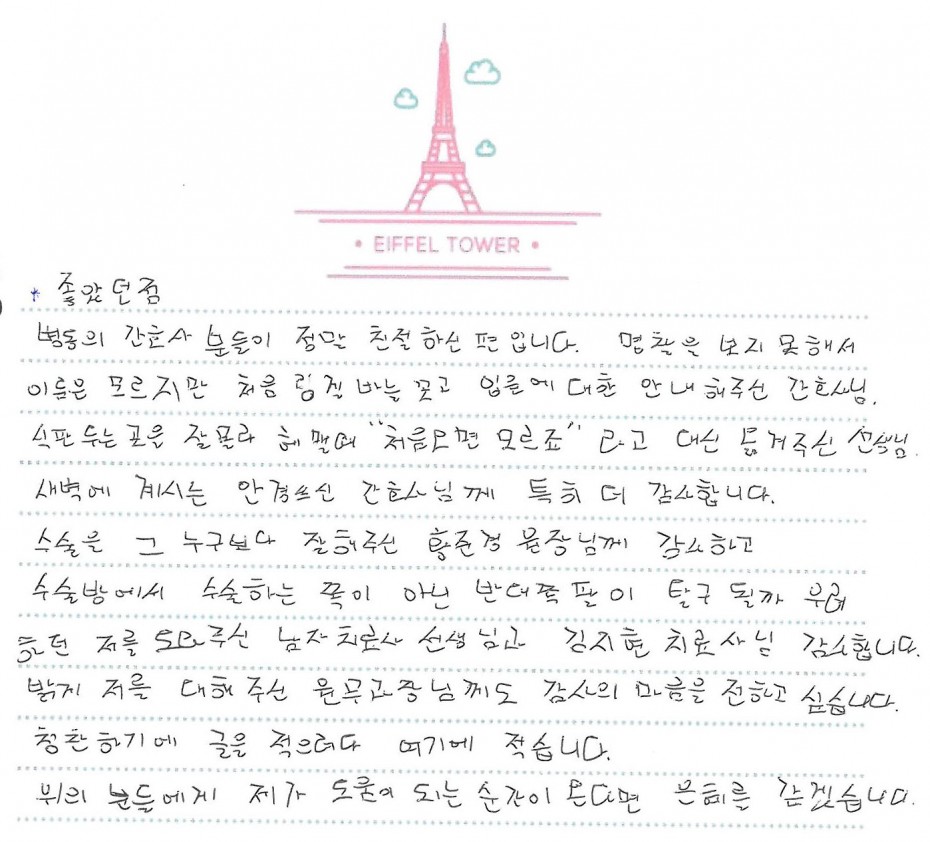 • EIFFEL TOWER •
* 좋았던점
병동의 간호사 분들이 정말 친절하신 편입니다. 명찰을 보지 못해서
이름은 모르지만 처음 링겔 바늘 꽂고 입원에 대한 안내해주신 간호사님,
식판 두는 곳을 잘 몰라 헤맬때 "처음오면 모르죠" 라고 대신 옮겨주신 선생님.
새벽에 계시는 안경쓰신 간호사님께 특히 더 감사합니다.
수술을 그 누구보다 잘해주신 황준경 원장님께 감사하고
수술방에서 수술하는 쪽이 아닌 반대쪽 팔이 탈구 될까 우려
하던 저를 도와주신 남자치료사 선생님과 김지현 치료사님 감사합니다.
밝게 저를 대해 주신 원무과장님께도 감사의 마음을 전하고 싶습니다.
칭찬하기에 글을 적으려다 여기에 적습니다.
위의 분들에게 제가 도움이 되는 순간이 온다면 은혜를 갚겠습니다.